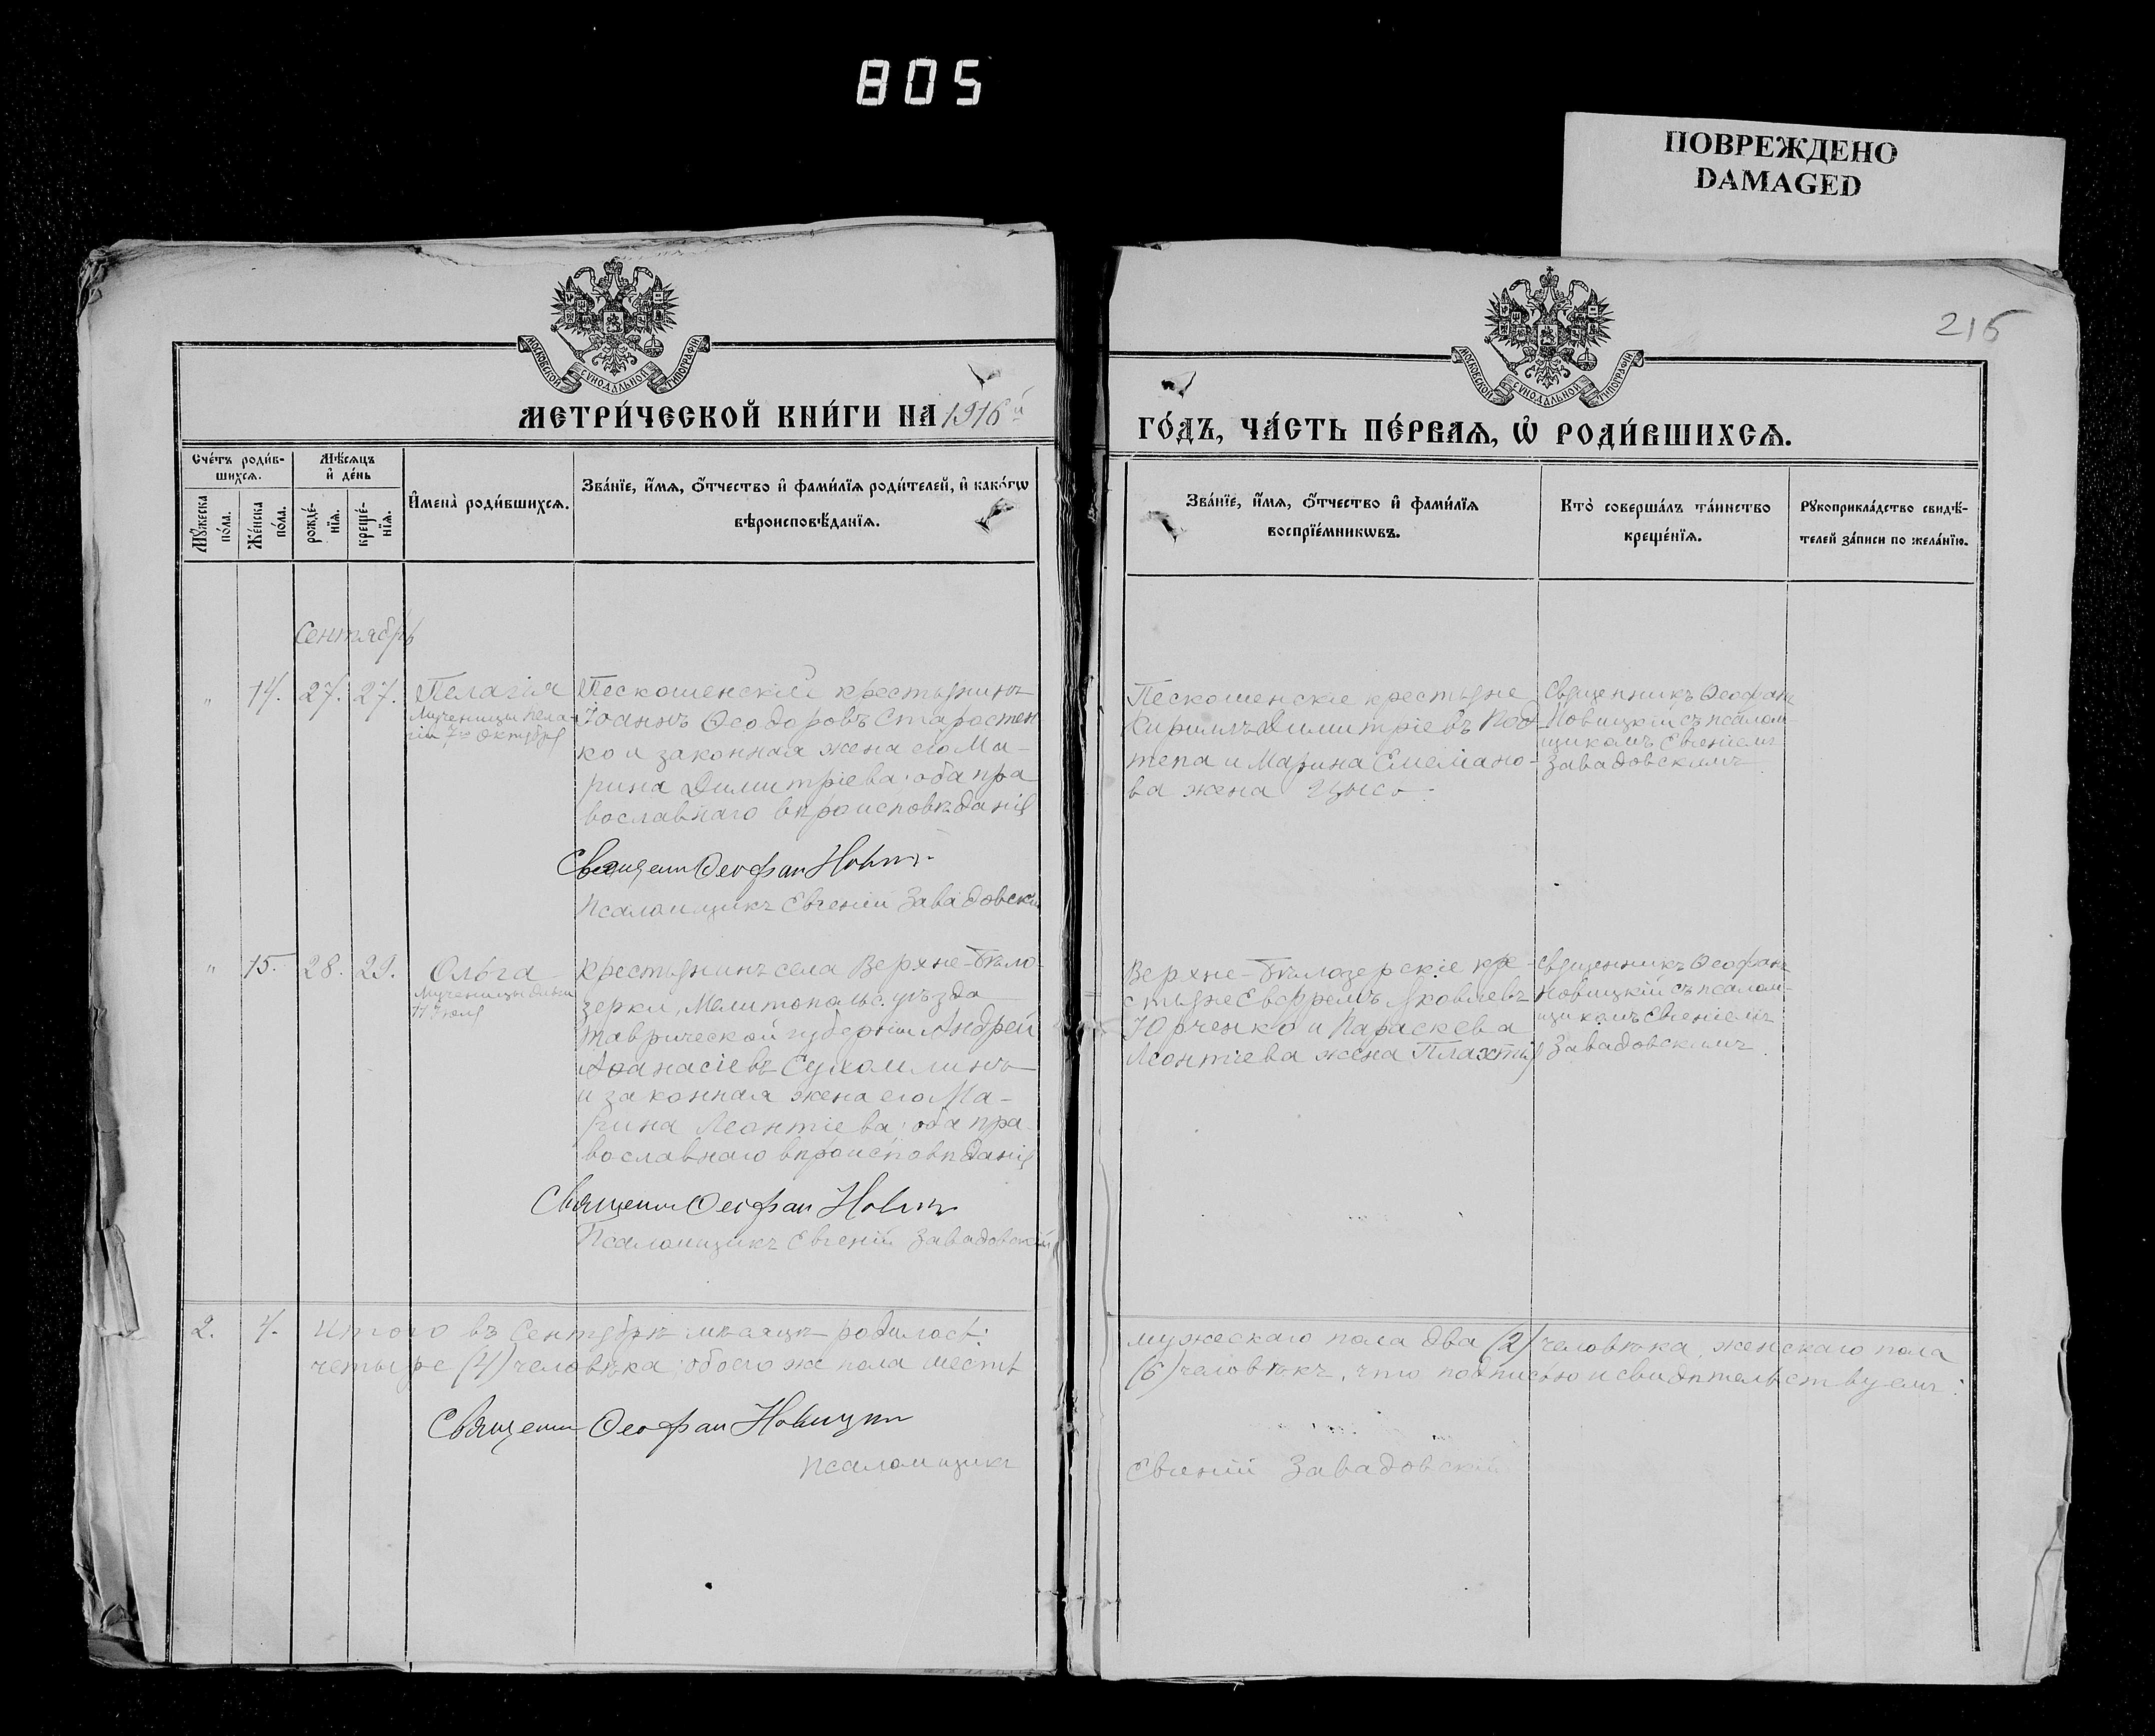 805
ПОВРЕЖДЕНО
DAMAGED
215
МОСКОВСКОЙ СУНОДАЛЬНОЙ ТИПОГРАФІИ
МОСКОВСКОЙ СУНОДАЛЬНОЙ ТИПОГРАФІИ
МЕТРИ́ЧЕСКОЙ КНИ́ГИ НА 1916й
ГО́ДЪ, ЧА́СТЬ ПЕ́РВАЯ, Ѡ҆ РОДИ́ВШИХСѦ.
Сче́тъ роди́в-
шихсѧ.
Мѣ́сѧцъ
и҆ де́нь
Мꙋ́жеска
по́ла.
Же́нска
по́ла.
рожде́-
нїѧ.
креще́-
нїѧ.
И҆мена̀ роди́вшихсѧ.
Зва́нїе, и҆́мѧ, ѻ҆́тчество и҆ фами́лїѧ роди́телей, и҆ како́гѡ
вѣроисповѣ́данїѧ.
Зва́нїе, и҆́мѧ, ѻ҆́тчество и҆ фами́лїѧ
воспрїе́мникѡвъ.
Кто̀ соверша́лъ та́инство
креще́нїѧ.
Рꙋкоприкла́дство свидѣ́-
телей за́писи по жела́нїю.
Сентябрь
" 14. 27. 27. Пелагія
Мученицы Пела-
гіи 7го Октября
Пескошенскій крестьянинъ
Іоаннъ Ѳеодоровъ Старостен
ко и законная жена его Ма-
рина Димитріева: оба пра
вославнаго вѣроисповѣданія
Священ Ѳеофан Новиц
Псаломщикъ Евгеній Завадовскій
Пескошенскіе крестьяне
Кириллъ Димитріевъ
тепа и Марина Емеліано-
ва жена
Священникъ Ѳеофанъ
Новицкій съ псалом-
щикомъ Евгеніемъ
Завадовскимъ
" 15. 28. 29. Ольга
Мученицы
11 Іюля
Крестьянинъ села Верхне-Бѣло-
зерки, Мелитопольс. уѣзда
Таврической губерніи Андрей
Аѳанасіевъ Сухомлинъ
и законная жена его Ма-
рина Леонтіева: оба пра-
вославнаго вѣроисповѣданія
Священ Ѳеофан Новиц
Псаломщикъ Евгеній Завадовскій
Верхне-Бѣлозерскіе кре-
стьяне Евфремъ Яковлевъ
Юрченко и Параскева
Леонтіева жена Плахтія
Священникъ Ѳеофанъ
Новицкій съ псалом-
щикомъ Евгеніемъ
Завадовскимъ.
2. 4. Итого въ Сентябрѣ мѣсяцѣ родилось:
мужескаго пола два (2) человѣка, женскаго пола
четыре (4) человѣка; обоего же пола шесть
(6) человѣкъ, что подписью и свидѣтельствуемъ:
Священ Ѳеофан Новицкій
Псаломщикъ
Евгеній Завадовскій